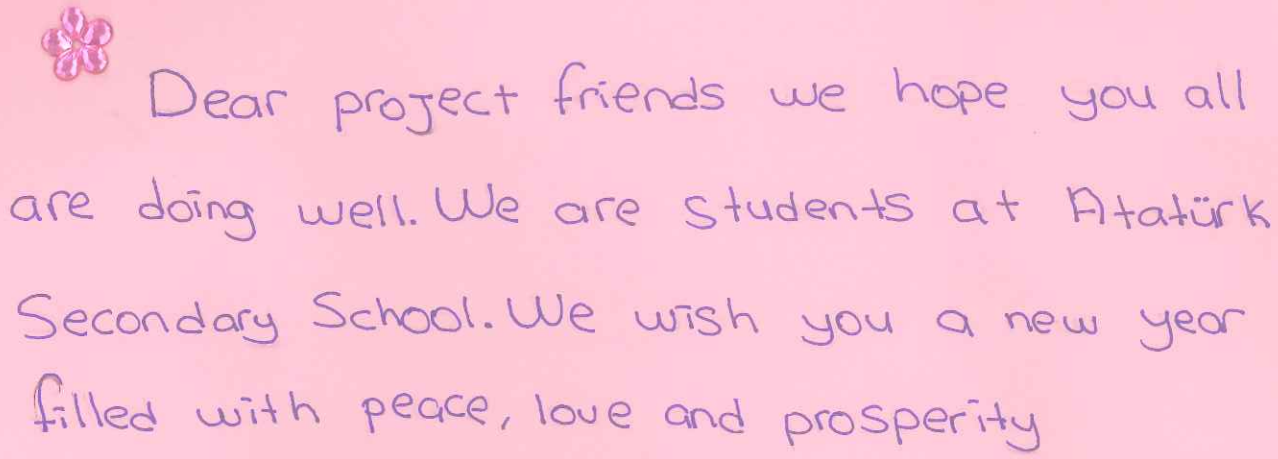 Dear project friends we hope you all
are doing well. We are students at Atatürk
Secondary School. We wish you a new year
filled with peace, love and prosperity